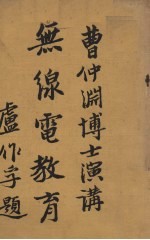 曹仲淵博士演講
無線電教育
盧作孚題